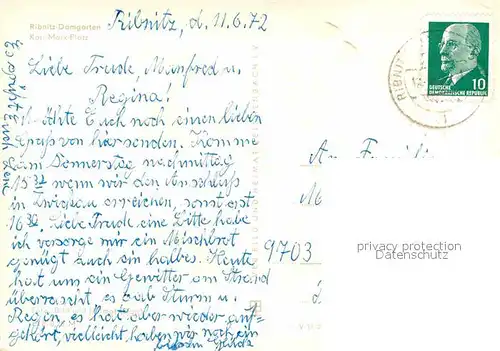 Ribnitz, d. 11.6.72
Ribnitz-Damgarten
Karl-Marx-Platz
Liebe Trude, Manfred u.
Regina!
Möchte Euch noch einen lieben
Gruß von hier senden. Komme
am Donnerstag nachmittag
15 31 wenn wir den Anschluß
in Zwickau erreichen, sonst erst
16 30. Liebe Trude eine Bitte habe
ich versorge mir ein Mischbrot
genügt auch ein halbes. Heute
hat uns ein Gewitter am Strand
überrascht, es gab Sturm u.
Regen, es hat aber wieder auf-
gehört, vielleicht haben wir noch ein
bißchen
10
DEUTSCHE
DEMOKRATISCHE REPUBLIK
RIBNIT
An Famili
M
9703
privacy protection
Datenschutz